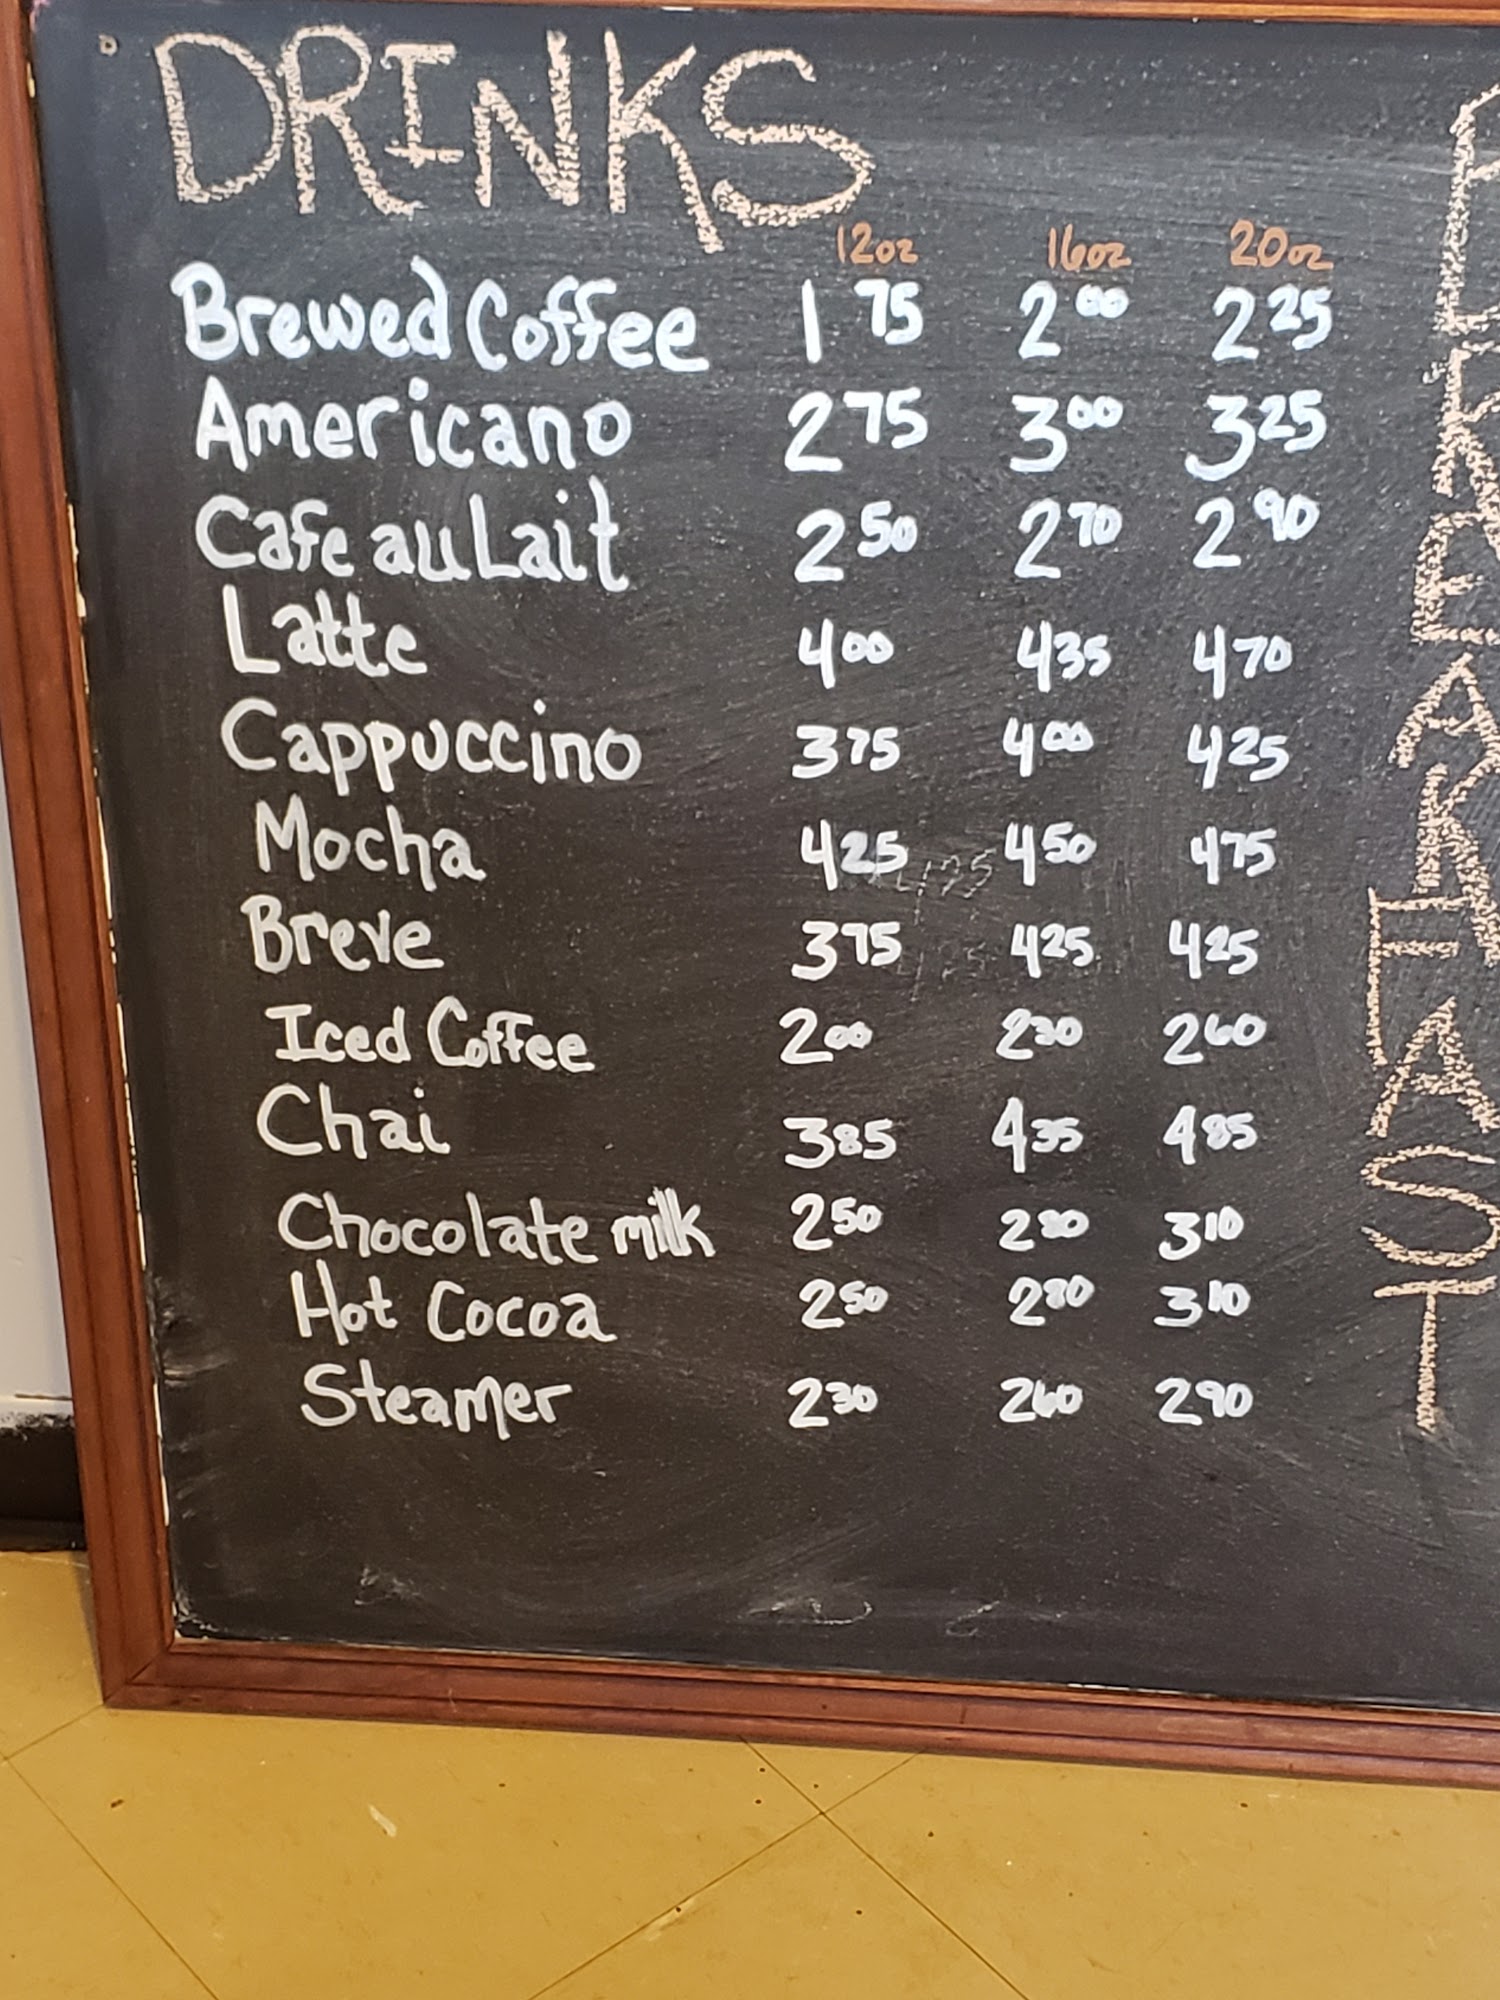 DRINKS
12oz 16oz 20oz
Brewed Coffee 1 75 2 00 2 25
Americano 2 75 3 00 3 25
Cafe au Lait 2 50 2 70 2 90
Latte 4 00 4 35 4 70
Cappuccino 3 75 4 00 4 25
Mocha 4 25 4 50 4 75
Breve 3 75 4 25 4 25
Iced Coffee 2 00 2 30 2 60
Chai 3 85 4 35 4 85
Chocolate milk 2 50 2 80 3 10
Hot Cocoa 2 50 2 80 3 10
Steamer 2 30 2 60 2 90
BREAKFAST